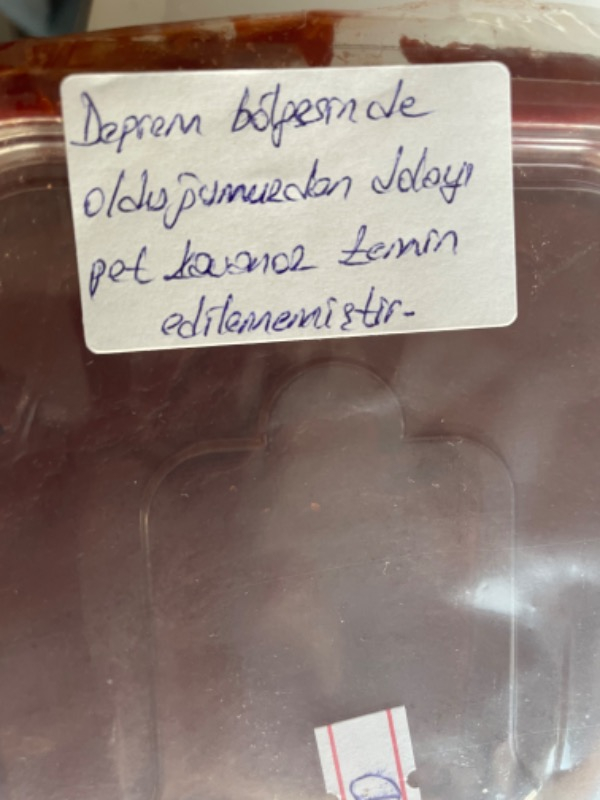 Deprem bölgesinde
olduğumuzdan dolayı
pet kavanoz temin
edilememiştir.